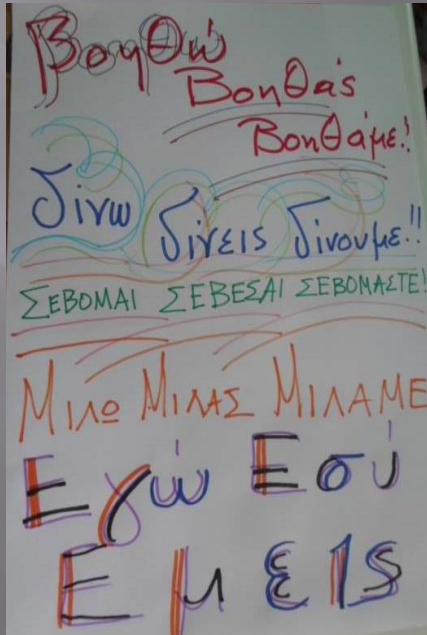 Βοηθώ
Βοηθάς
Βοηθάμε!!
Δίνω δίνεις δίνουμε!!
ΣΕΒΟΜΑΙ ΣΕΒΕΣΑΙ ΣΕΒΟΜΑΣΤΕ!
ΜΙΛΩ ΜΙΛΑΣ ΜΙΛΑΜΕ
Εγώ Εσύ
Εμείς